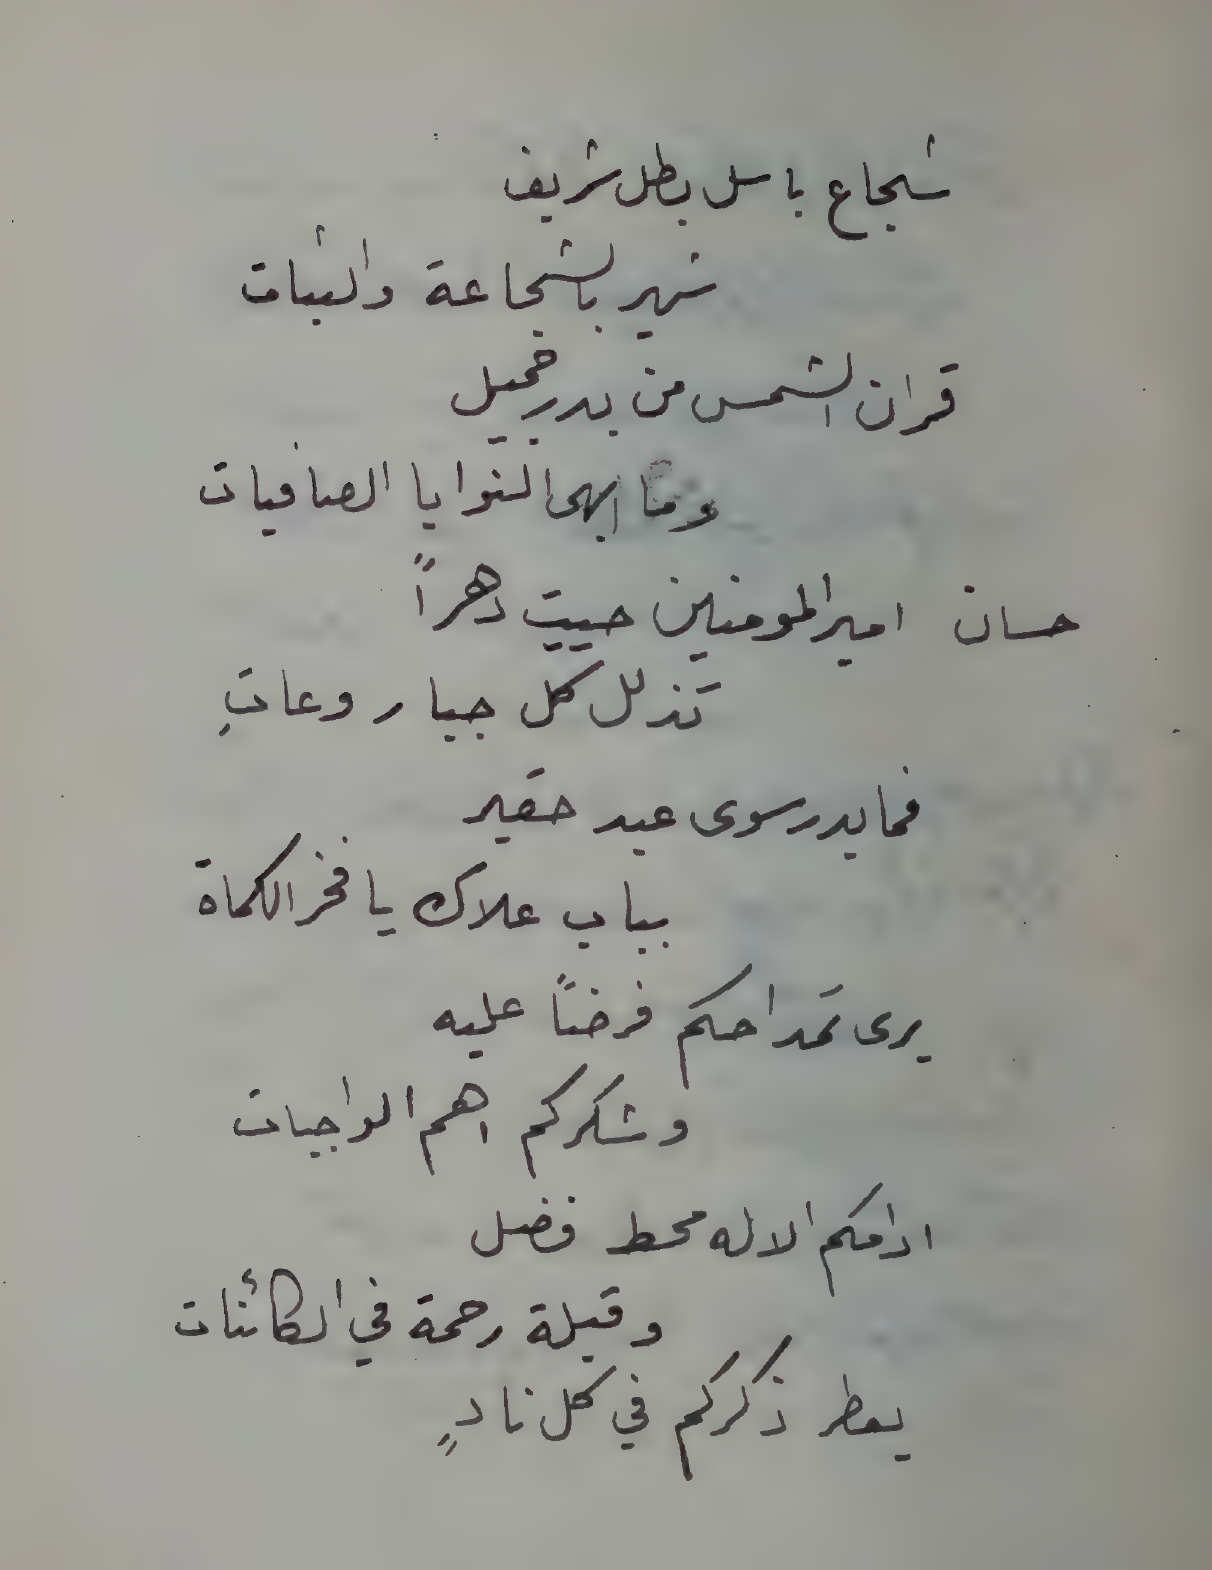 شجاع باسل بطل شريف
شهير بالشجاعة والثبات
قران الشمس من بدر جميل
وما ابهى النوايا الصافيات
حسان امير المومنين حييت دهراً
تذلل كل جبار وعاتٍ
فما بدر سوى عبد حقير
بباب علاك يا فخر الكماة
يرى تمداحكم فرضاً عليه
وشكركم اهم الواجبات
ادامكم الاله محط فضل
وقبلة رحمة في الكائنات
يعطر ذكركم في كل نادٍ